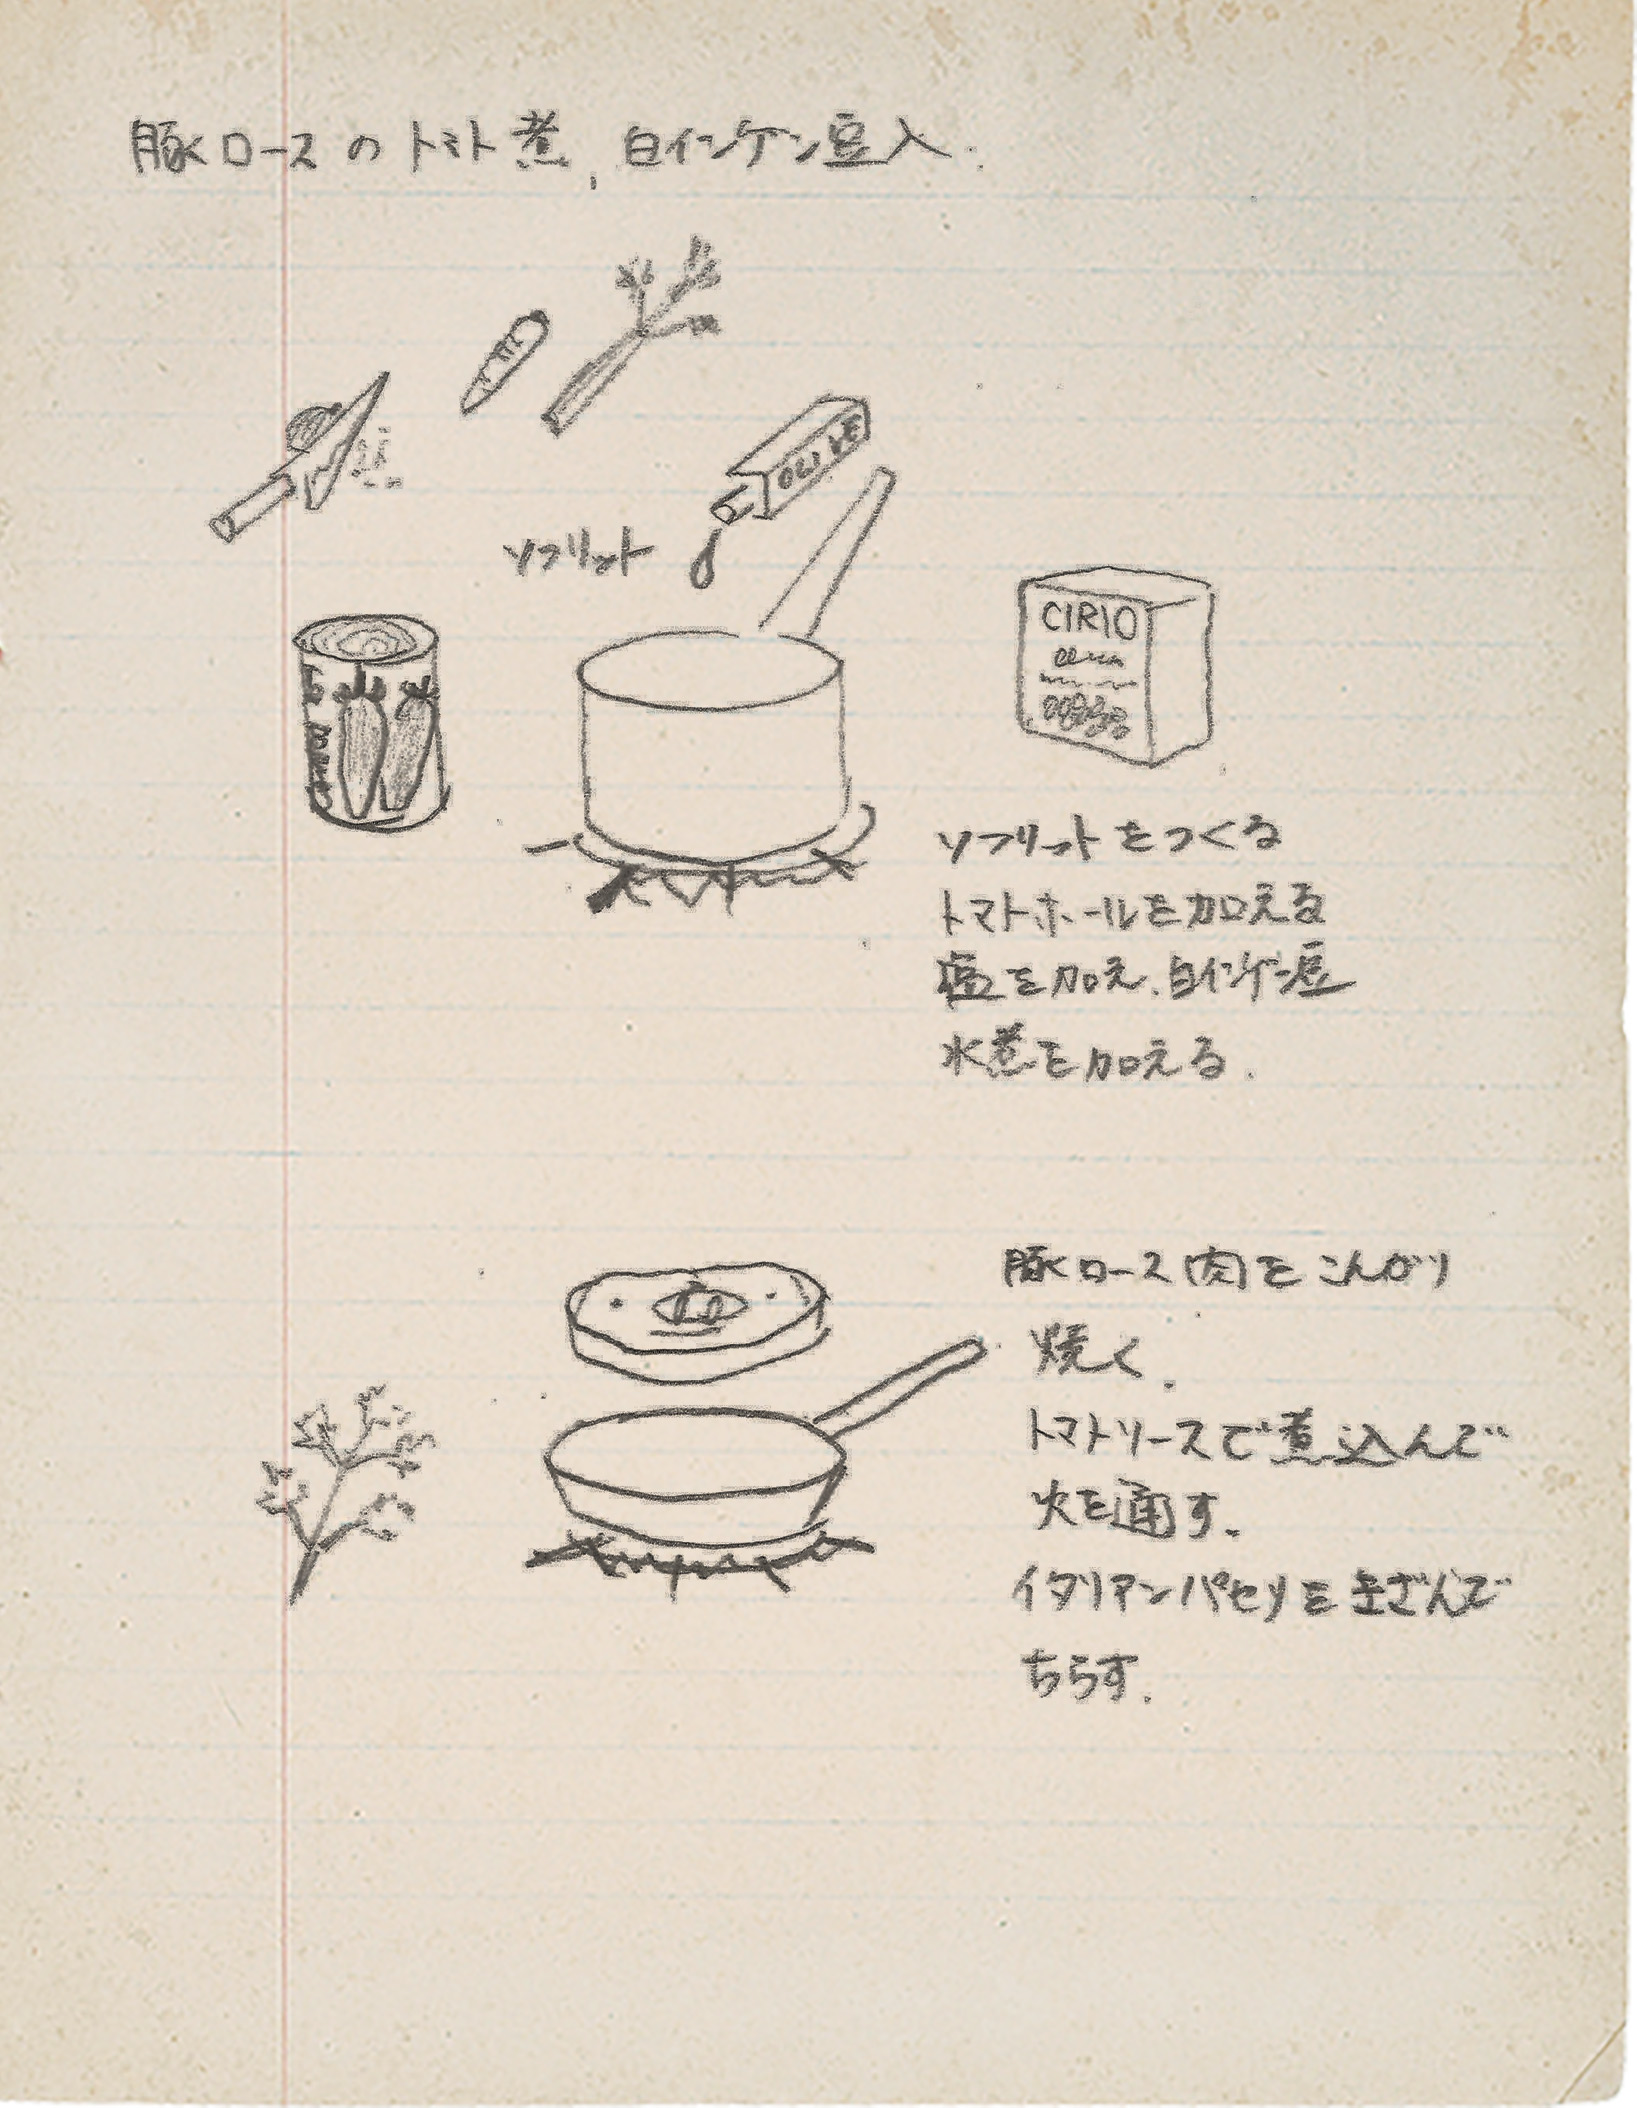 豚ロースのトマト煮、白インゲン豆入.
ソフリット
CIRIO
ソフリットをつくる
トマトホールを加える
塩を加え、白インゲン豆
水煮を加える.
豚ロース肉をこんがり
焼く.
トマトソースで煮込んで
火を通す.
イタリアンパセリをきざんで
ちらす.